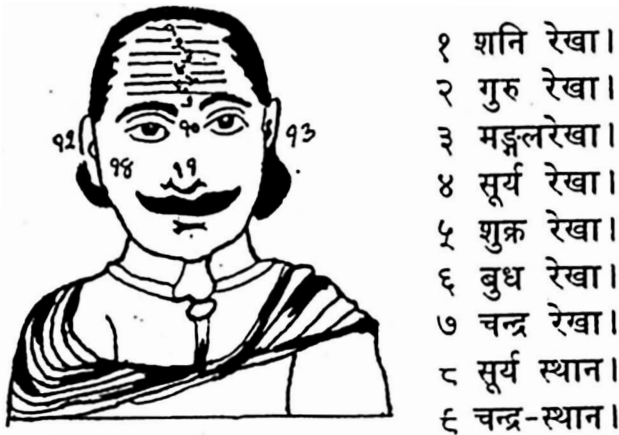 १० 
१२ १३
१४ ११
१ शनि रेखा।
२ गुरु रेखा।
३ मङ्गलरेखा।
४ सूर्य रेखा।
५ शुक्र रेखा।
६ बुध रेखा।
७ चन्द्र रेखा।
८ सूर्य स्थान।
९ चन्द्र-स्थान।